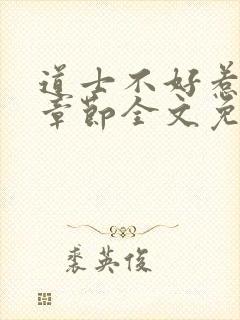 道士不好惹
章节全文免
裘英俊